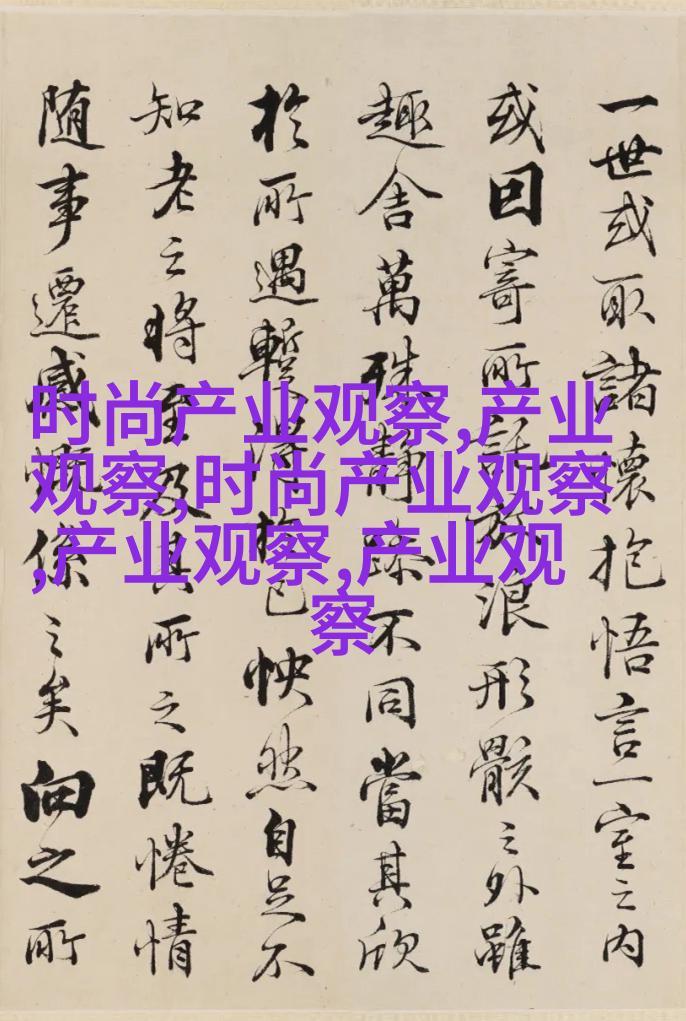 一世或取諸懷抱悟言一室之內
或因寄所託放浪形骸之外雖
趣舍萬殊靜躁不同當其欣
於所遇暫得於己怏然自足不
知老之將至及其所之既惓情
随事遷感慨係之矣向之所
时尚产业观察,产业
观察,时尚产业观察
,产业观察,产业观
察